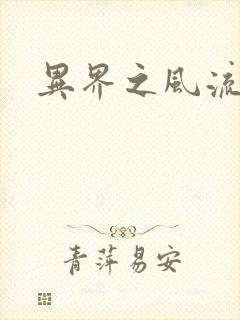 異界之風流
青萍易安